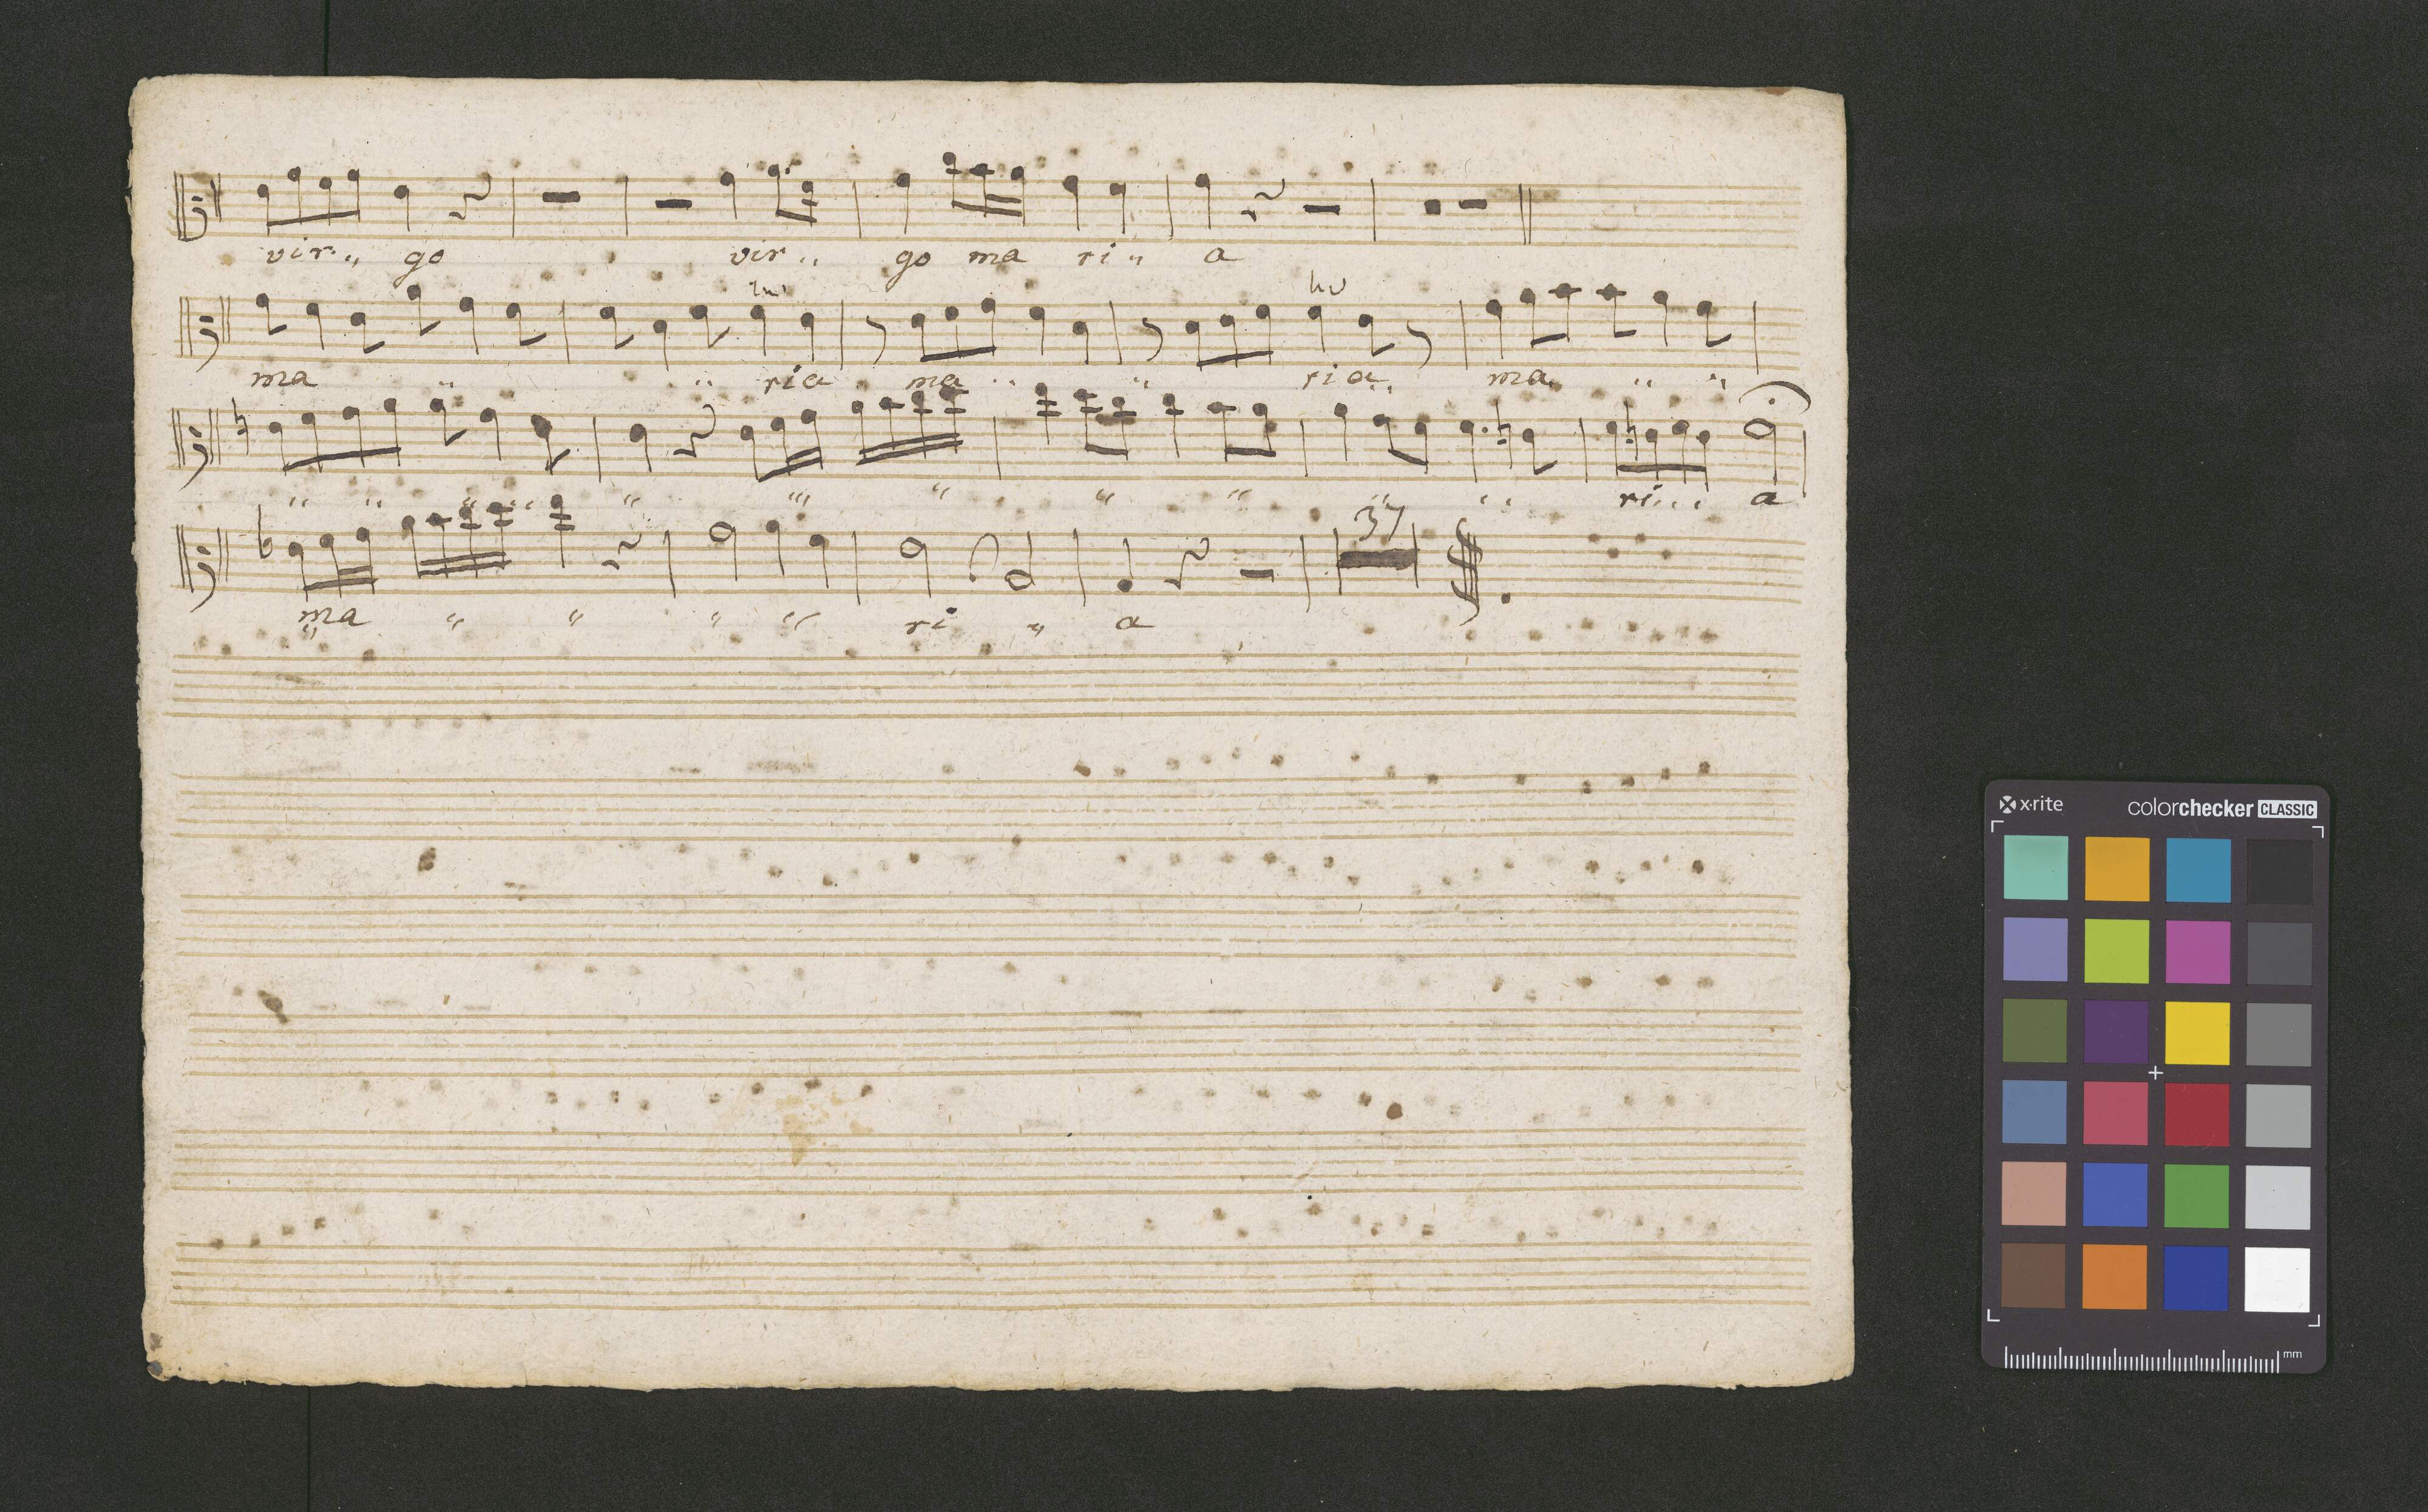 vir.„ go vir „ go ma ri „ a
ma „ „ ria ma „ „ ria „ ma „ „
„ „ „ „ „ „ „ „ „ „ „ ri „ „ a
37
ma „ „ „ „ ri „ a
x·rite colorchecker CLASSIC
mm